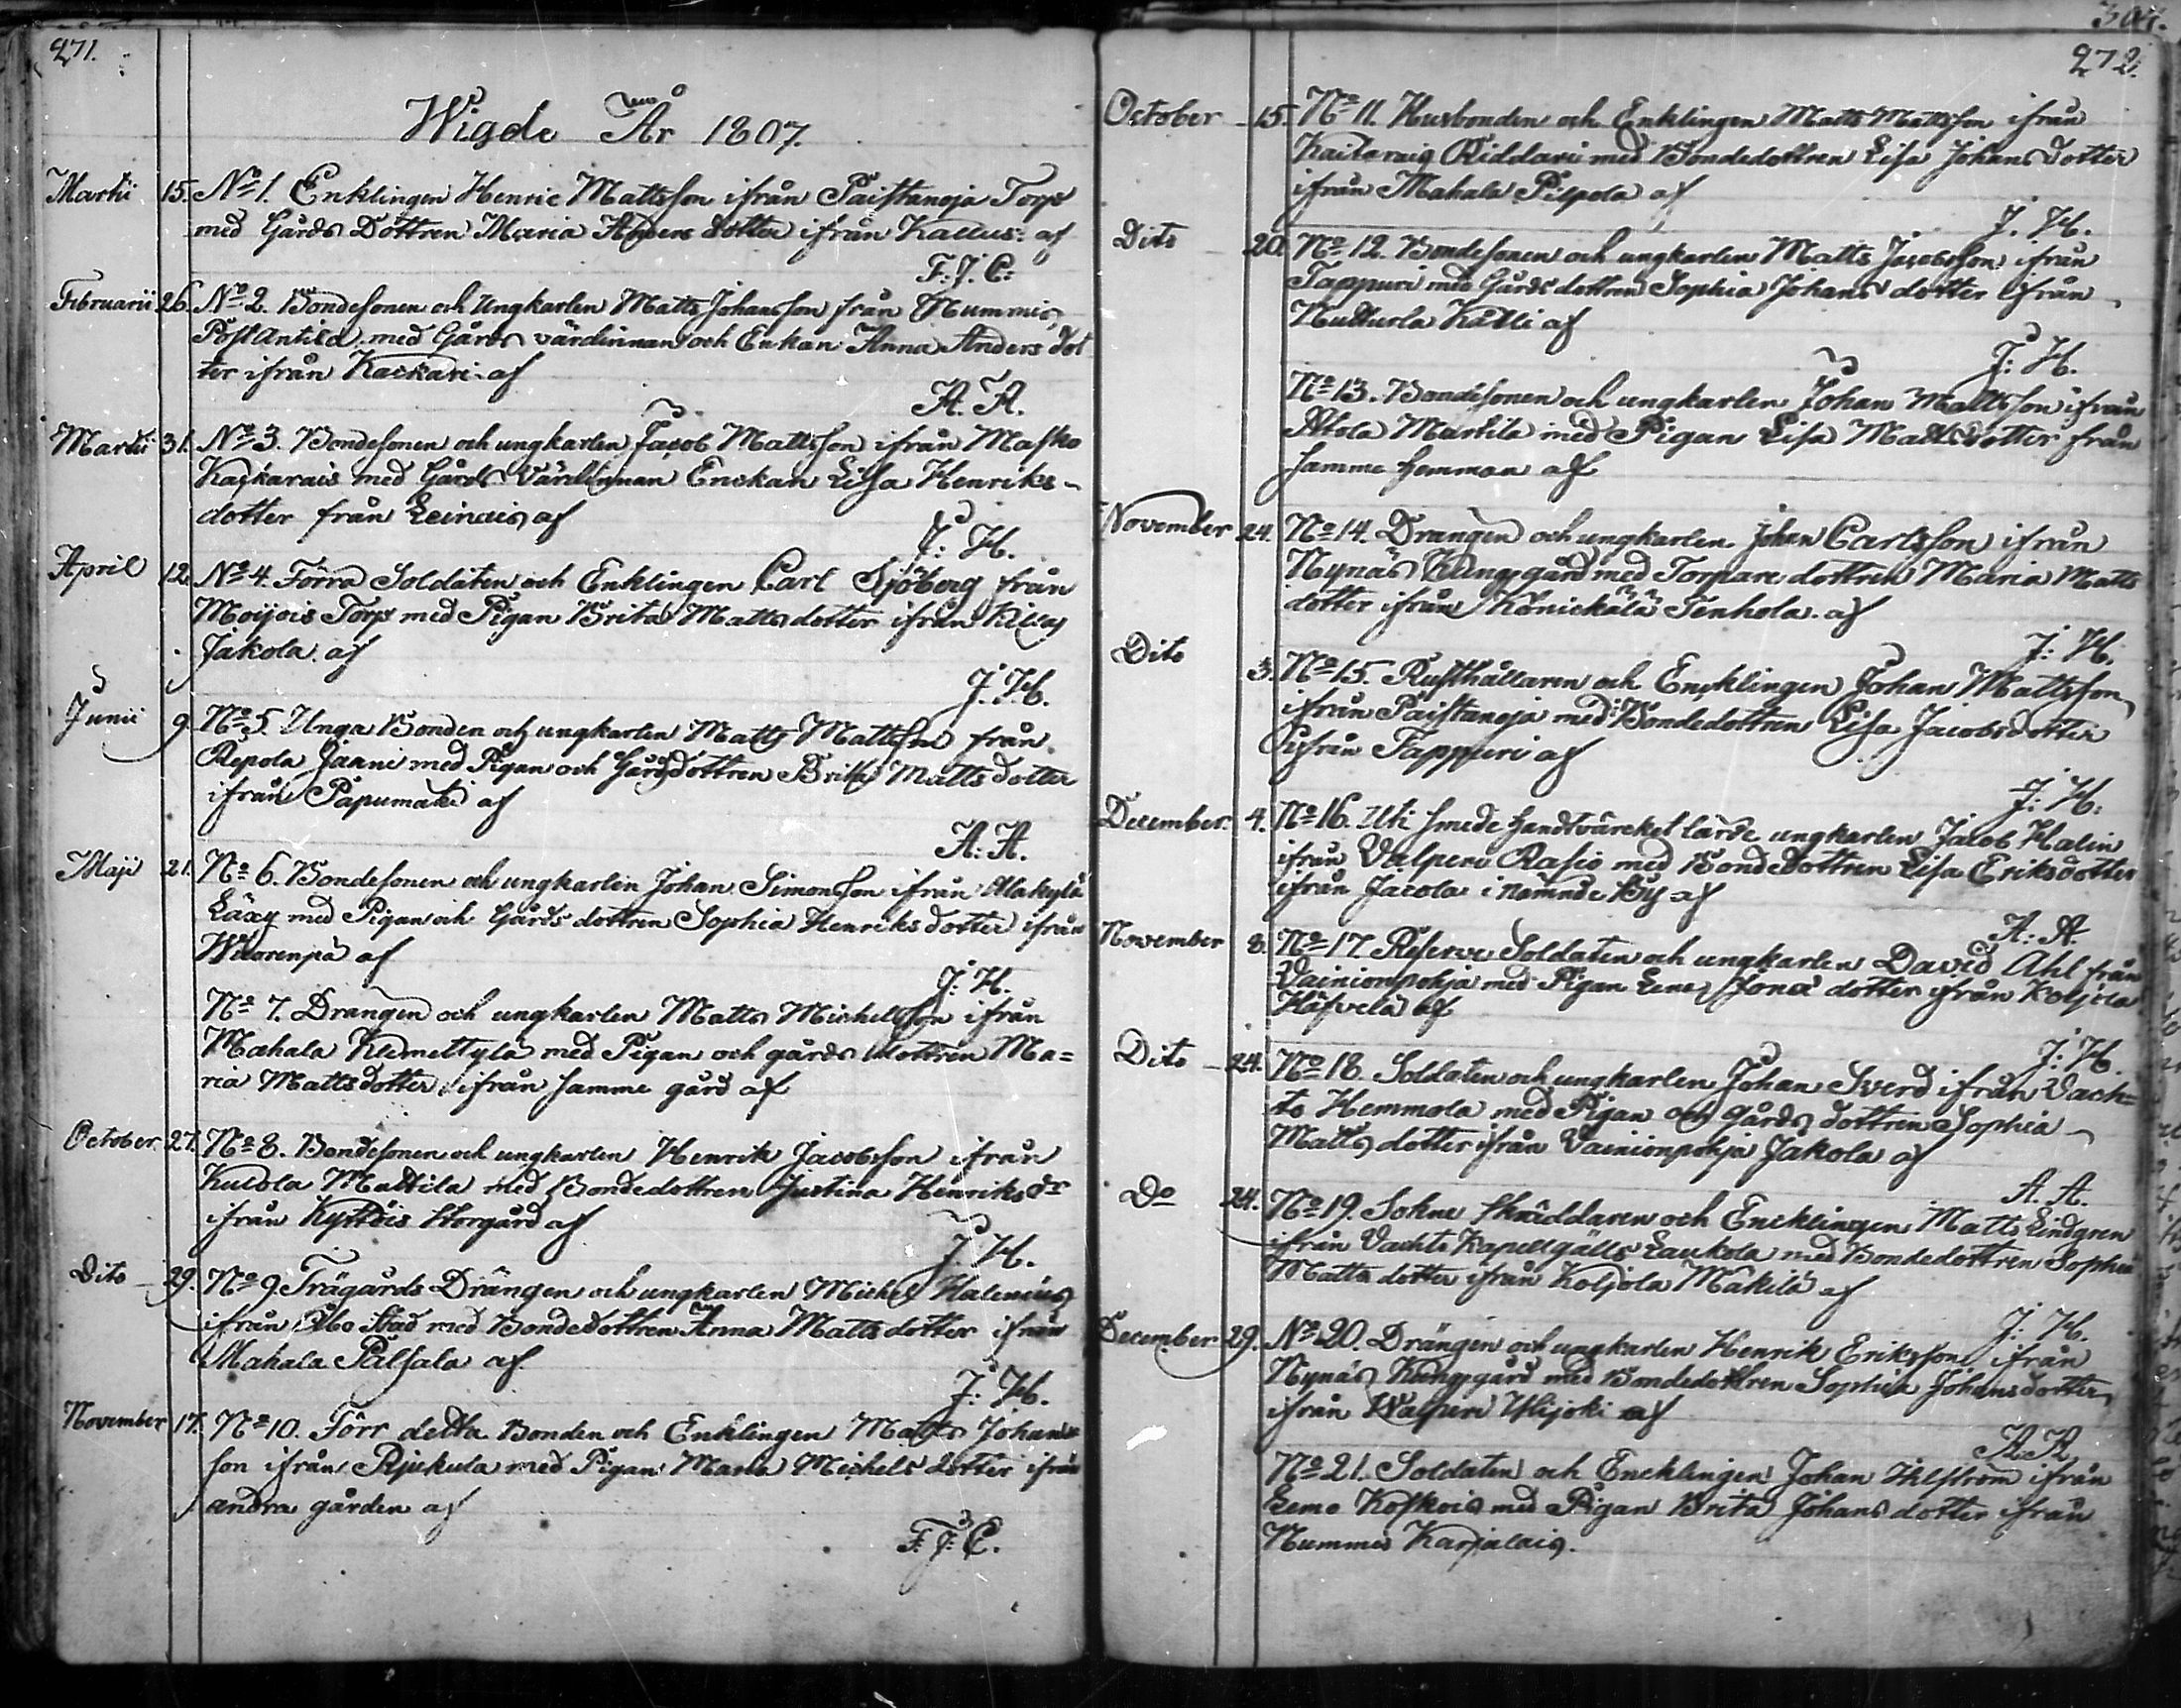 271.
Wigde År 1807.
Martii 15. No 1. Enklingen Henric Mattsson ifrån Paistanoja Torp
med Gårds Dottren Maria Anders dotter ifrån Kallus: af
F: J. C:
Februarii 26. No 2. Bondesonen och Ungkarlen Matts Johansson från Nummis
Påst Antila med Gårds värdinnan och Enkan Anna Anders dot
ter ifrån Kaskari af
A. A.
Martii 31. No 3. Bondesonen och ungkarlen Jacob Mattsson ifrån Masko
Kaskarais med Gårds Värdinnan Enckan Lisa Henriks-
dotter från Leinais af
J: H.
April 12. No 4. Förra Soldaten och Enklingen Carl Sjöberg från
Moijois Torp med Pigan Brita Matts dotter ifrån
Jakola. af
J. H.
Junii 9. No 5. Unga Bonden och ungkarlen Matts Mattsson från
Repola Jaani med Pigan och Gårdsdottren Brita Matts dotter
ifrån Papumäki af
A: A.
Maji 21. No 6. Bondesonen och ungkarlen Johan Simonsson ifrån Alakylä
Läxy med Pigan och Gårds dottren Sophia Henriks dotter ifrån
Wuorenpä af
J: H.
No 7. Drängen och ungkarlen Matts Michelsson ifrån
Mahala Klemettylä med Pigan och gårds dottren Ma=
ria Matts dotter ifrån samme gård af
October. 27. No 8. Bondesonen och ungkarlen Henrik Jacobsson ifrån
Kulola Mattila med Bondedottren Justina Henriks dr
ifrån Kyttöis Storgård af
J: H.
Dito 29. No 9. Trägårds Drängen och ungkarlen Michel Halenius
ifrån Åbo Stad med Bondedottren Anna Matts dotter ifrån
Mahala Palsala af
J: H.
November 17. No 10. Förr detta Bonden och Enklingen Matts Johans=
son ifrån Rjukula med Pigan Maria Michels dotter ifrån
andra gården af
F: J: C.
304.
272.
October 15. No 11. Husbonden och Enklingen Matts Mattsson ifrån
Kaitarais Riddari med Bondedottren Lisa Johans dotter
ifrån Mahala Pilpola af
J. H.
Dito 20. No 12. Bondesonen och ungkarlen Matts Jacobsson ifrån
Tappuri med Gårds dottren Sophia Johans dotter ifrån
Källi af
J: H.
No 13. Bondesonen och ungkarlen Johan Mattsson ifrån
Martila med Pigan Lisa Matts dotter från
samme hemman af
November 24. No 14. Drängen och ungkarlen Johan Carlsson ifrån
Nynäs Kungsgård med Torpare dottren Maria Matts
dotter ifrån Könickälä Tenhola. af
J: H.
Dito 3. No 15. Rusthållaren och Encklingen Johan Mattsson
ifrån Paistanoja med Bondedottren Lisa Jacobs dotter
ifrån Tappuri af
J: H:
December. 4. No 16. Uti smede handtvärcket lärde ungkarlen Jacob Halin
ifrån Valperi Rasis med Bondedottren Lisa Eriks dotter
ifrån Jacola i nämnde By af
A: A.
November 8. No 17. Reserve Soldaten och ungkarlen David Ahl från
Vainionpohja med Pigan Lena Jona dotter ifrån Koljola
af
J: H.
Dito 24. No 18. Soldaten och ungkarlen Johan Sverd ifrån Vach=
to Hemmola med Pigan och gårds dottren Sophia
Matts dotter ifrån Vainionpohja Jakola af
A. A.
Do 24. No 19. Sokne skräddaren och Encklingen Matts Lindgren
ifrån Vachto Kapellgälls Laukola med Bondedottren Sophia
Matts dotter ifrån Koljola Mäkilä af
J: H.
December 29. No 20. Drängen och ungkarlen Henrik Eriksson ifrån
Nynäs Kungsgård med Bondedottren Sophia Johans dotter
ifrån Walperi Ylijoki af
A. A.
No 21. Soldaten och Encklingen Johan Ihlström ifrån
Lemo Koskois med Pigan Brita Johans dotter ifrån
Nummis Karjalais.